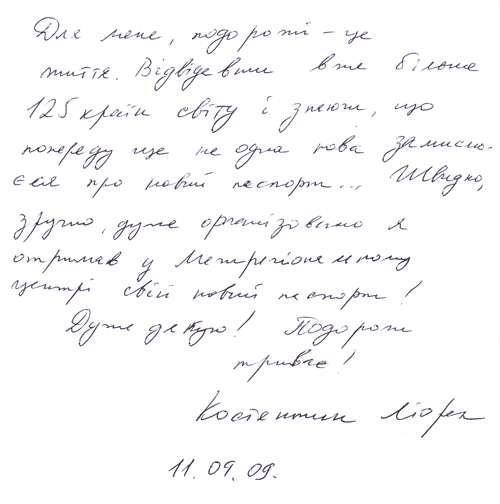 Для мене, подорожі – це
життя. Відвідавши вже більше
125 країн світу і знаючи, що
попереду ще не одна нова замислю-
єшся про новий паспорт... Швидко,
зручно, дуже організовано я
отримав у Межрегіональному
центрі свій новий паспорт!
Дуже дякую! Подорож
триває!
Костянтин
11.09.09.